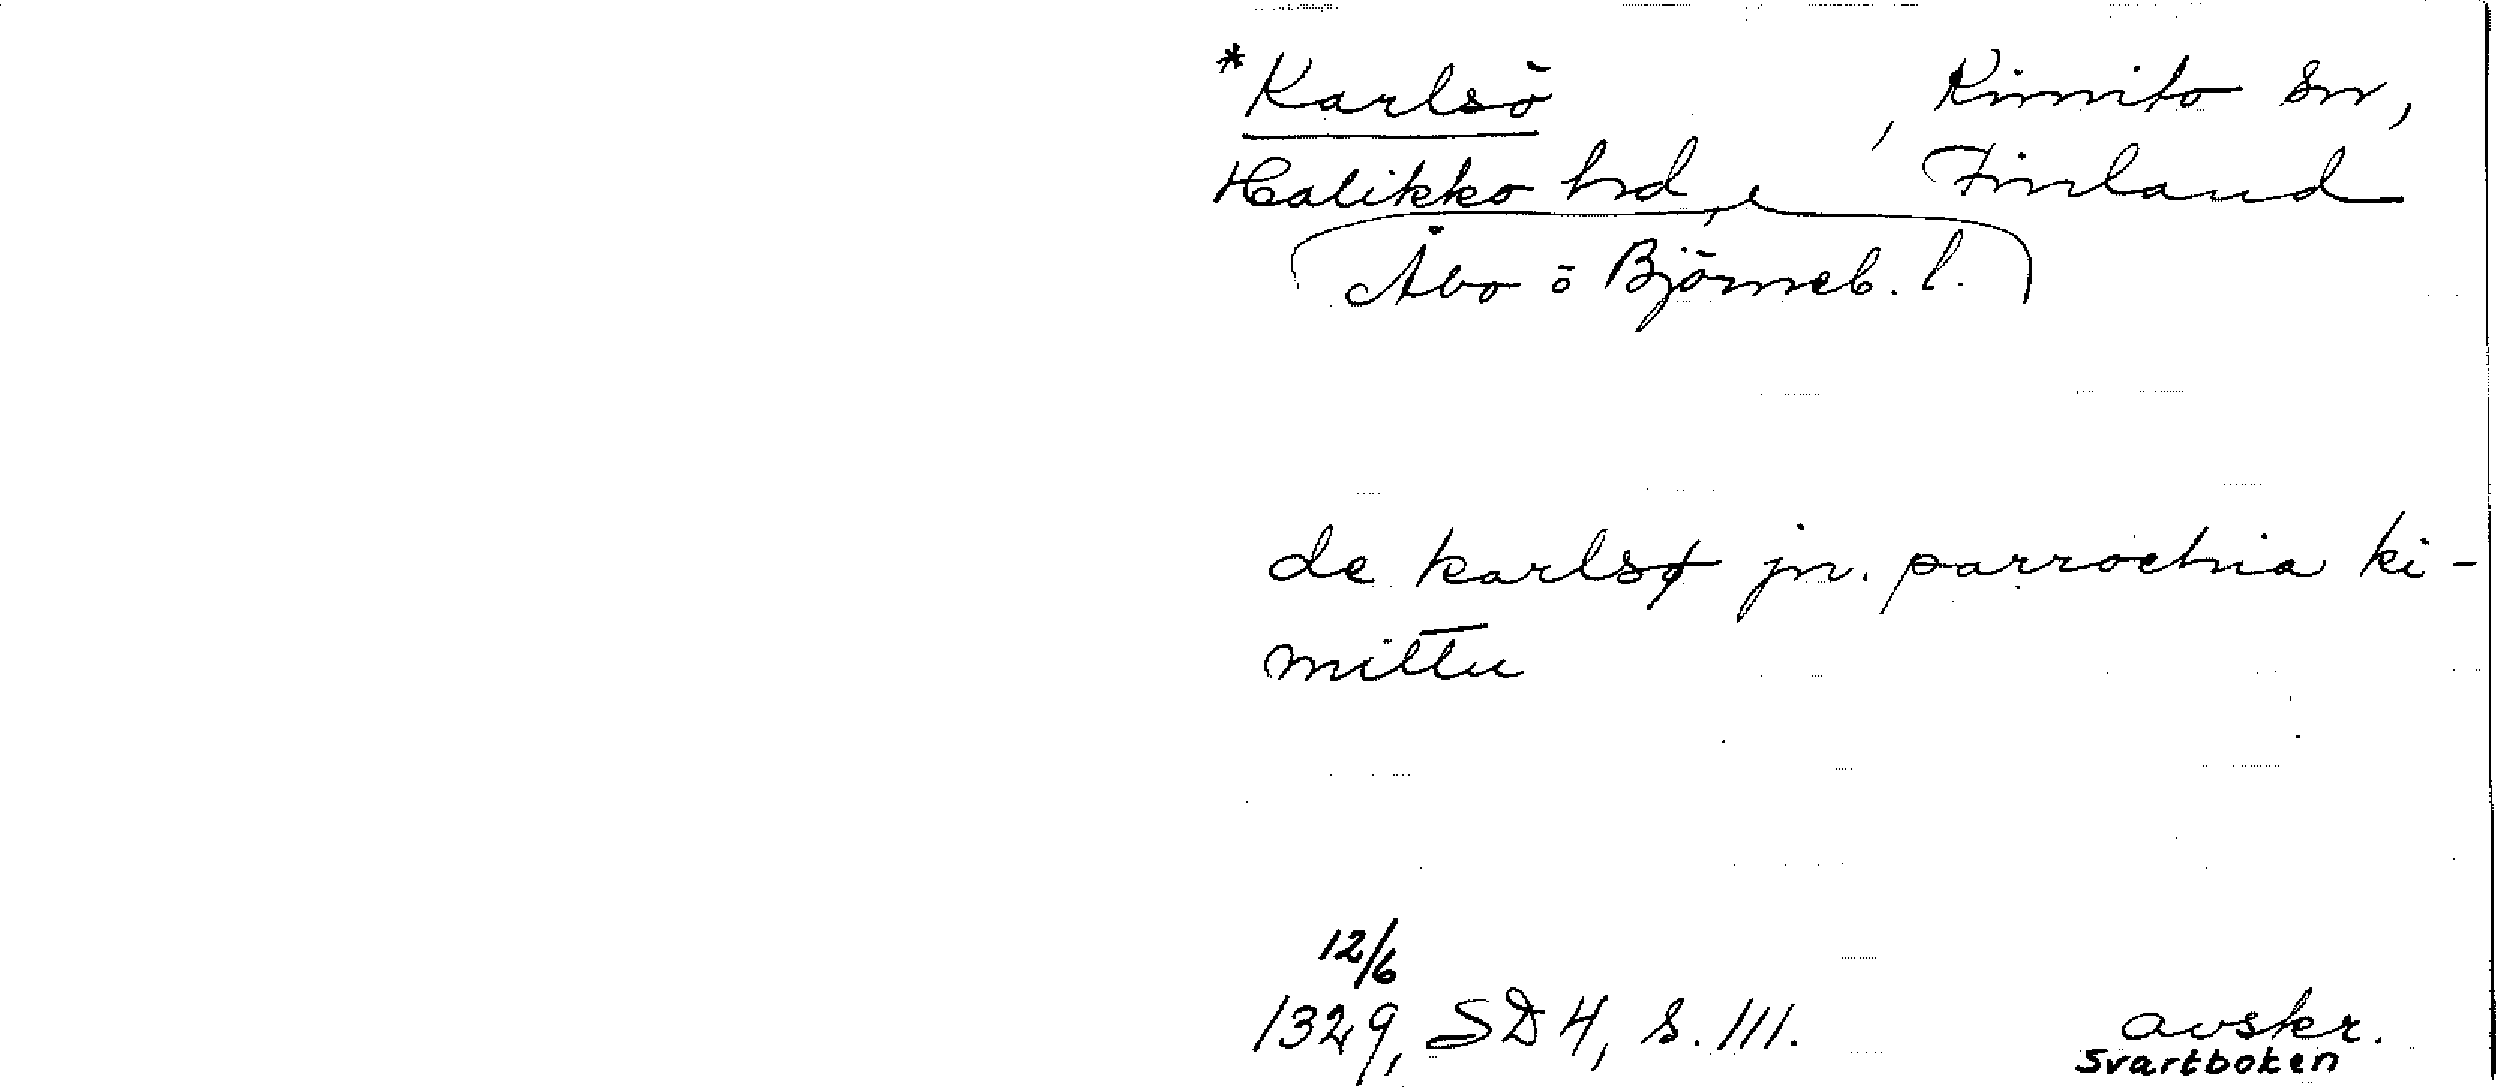 *Karlsö , Kimito sn,
Halikko hrd, Finland
Åbo o Björneb. l.
de karlsø jn. parrochia ki-
mittu
12/6
1329, SD 4, s. 111. avskr.
Svartboken